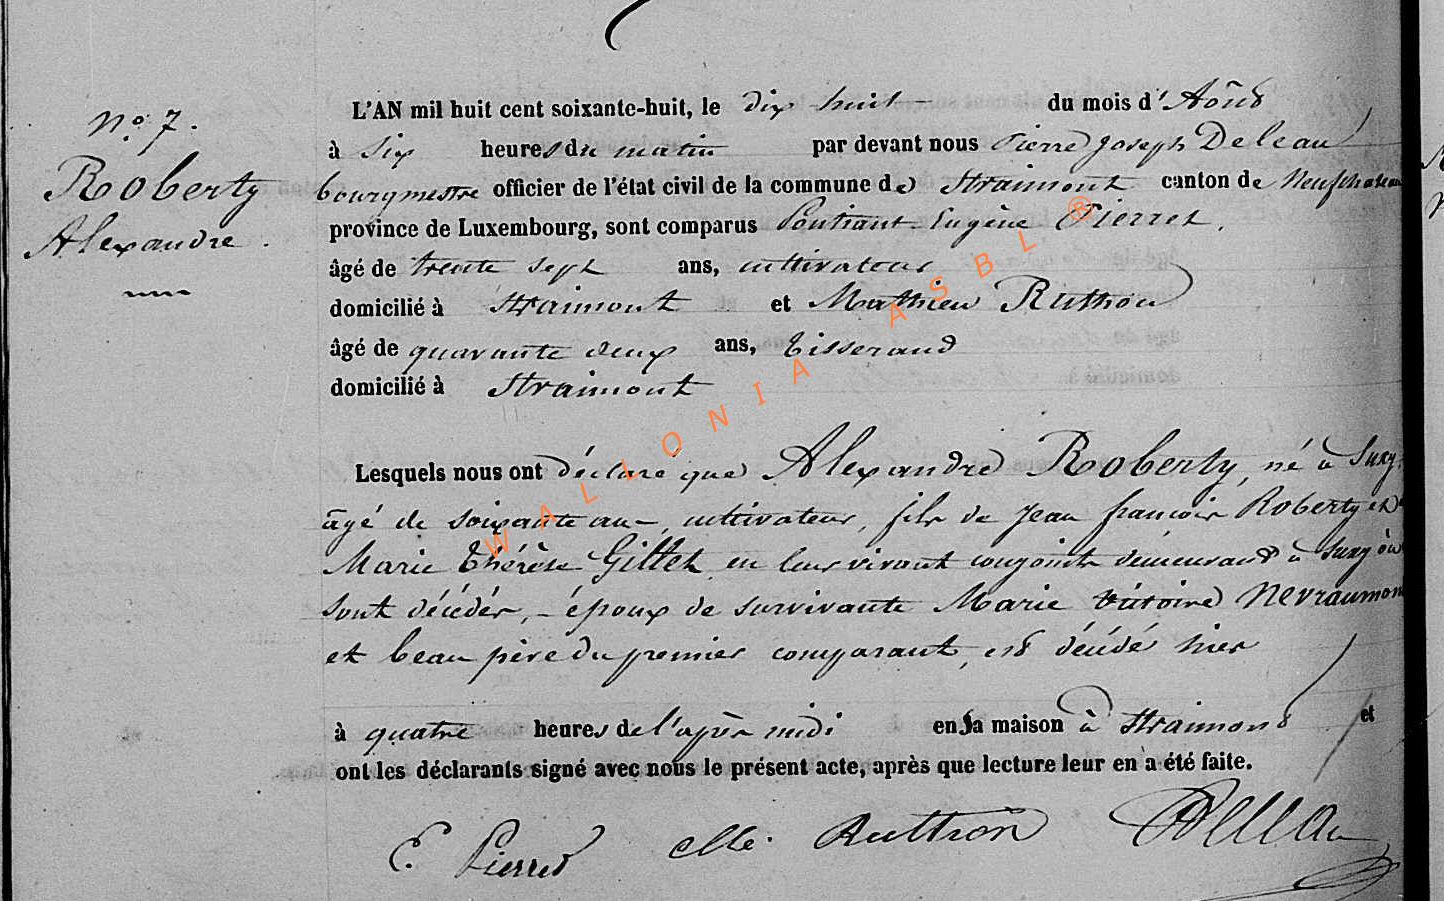 N.º 7.
Roberty
Alexandre.
L'AN mil huit cent soixante-huit, le dix huit - du mois d'Août
à six heures du matin par devant nous Pierre Joseph Deleau
bourgmestre officier de l'état civil de la commune de Straimont canton de Neufchateau
province de Luxembourg, sont comparus Pontiant Eugène Pierret,
âgé de trente sept ans, cultivateur
domicilié à Straimont et Mathieu Ruthon
âgé de quarante deux ans, tisserand
domicilié à Straimont
Lesquels nous ont déclaré que Alexandre Roberty, né à Suxy,
âgé de soixante ans, cultivateur, fils de Jean françois Roberty et de
Marie Thérèse Gillet en leur vivant conjoints demeurant à Suxy où
sont décédés, - époux de survivante Marie Victoire Nevraumont
et beau père du premier comparant, est décédé hier
à quatre heures de l'après midi en sa maison à Straimont et
ont les déclarants signé avec nous le présent acte, après que lecture leur en a été faite.
E. Pierret Ruthon Deleau
WALLONIA ASBL ®